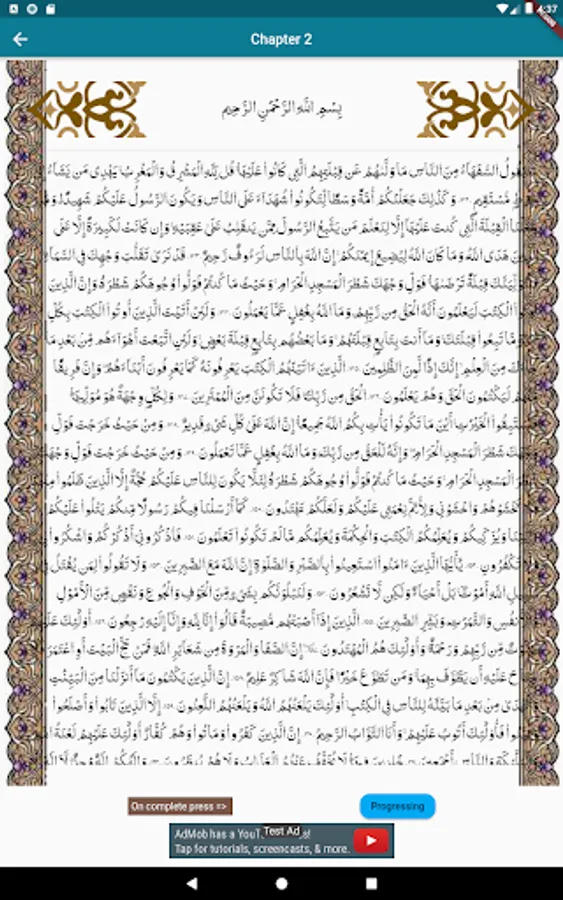 4:37
Chapter 2
بِسْمِ اللَّهِ الرَّحْمَٰنِ الرَّحِيمِ
السُّفَهَاءُ مِنَ النَّاسِ مَا وَلَّىٰهُمْ عَن قِبْلَتِهِمُ الَّتِي كَانُوا عَلَيْهَا قُل لِّلَّهِ الْمَشْرِقُ وَالْمَغْرِبُ يَهْدِي مَن يَشَاءُ
مُّسْتَقِيمٍ وَكَذَٰلِكَ جَعَلْنَٰكُمْ أُمَّةً وَسَطًا لِّتَكُونُوا شُهَدَاءَ عَلَى النَّاسِ وَيَكُونَ الرَّسُولُ عَلَيْكُمْ شَهِيدًا
الْقِبْلَةَ الَّتِي كُنتَ عَلَيْهَا إِلَّا لِنَعْلَمَ مَن يَتَّبِعُ الرَّسُولَ مِمَّن يَنقَلِبُ عَلَىٰ عَقِبَيْهِ وَإِن كَانَتْ لَكَبِيرَةً إِلَّا عَلَى
هَدَى اللَّهُ وَمَا كَانَ اللَّهُ لِيُضِيعَ إِيمَٰنَكُمْ إِنَّ اللَّهَ بِالنَّاسِ لَرَءُوفٌ رَّحِيمٌ قَدْ نَرَىٰ تَقَلُّبَ وَجْهِكَ فِي
قِبْلَةً تَرْضَىٰهَا فَوَلِّ وَجْهَكَ شَطْرَ الْمَسْجِدِ الْحَرَامِ وَحَيْثُ مَا كُنتُمْ فَوَلُّوا وُجُوهَكُمْ شَطْرَهُ وَإِنَّ الَّذِينَ
الْكِتَٰبَ لَيَعْلَمُونَ أَنَّهُ الْحَقُّ مِن رَّبِّهِمْ وَمَا اللَّهُ بِغَٰفِلٍ عَمَّا يَعْمَلُونَ وَلَئِنْ أَتَيْتَ الَّذِينَ أُوتُوا الْكِتَٰبَ بِكُلِّ
مَّا تَبِعُوا قِبْلَتَكَ وَمَا أَنتَ بِتَابِعٍ قِبْلَتَهُمْ وَمَا بَعْضُهُم بِتَابِعٍ قِبْلَةَ بَعْضٍ وَلَئِنِ اتَّبَعْتَ أَهْوَاءَهُم مِّن بَعْدِ مَا
مِنَ الْعِلْمِ إِنَّكَ إِذًا لَّمِنَ الظَّٰلِمِينَ الَّذِينَ ءَاتَيْنَٰهُمُ الْكِتَٰبَ يَعْرِفُونَهُ كَمَا يَعْرِفُونَ أَبْنَاءَهُمْ وَإِنَّ فَرِيقًا
لَيَكْتُمُونَ الْحَقَّ وَهُمْ يَعْلَمُونَ الْحَقُّ مِن رَّبِّكَ فَلَا تَكُونَنَّ مِنَ الْمُمْتَرِينَ وَلِكُلٍّ وِجْهَةٌ هُوَ مُوَلِّيهَا
الْخَيْرَٰتِ أَيْنَ مَا تَكُونُوا يَأْتِ بِكُمُ اللَّهُ جَمِيعًا إِنَّ اللَّهَ عَلَىٰ كُلِّ شَيْءٍ قَدِيرٌ وَمِنْ حَيْثُ خَرَجْتَ فَوَلِّ
شَطْرَ الْمَسْجِدِ الْحَرَامِ وَإِنَّهُ لَلْحَقُّ مِن رَّبِّكَ وَمَا اللَّهُ بِغَٰفِلٍ عَمَّا تَعْمَلُونَ وَمِنْ حَيْثُ خَرَجْتَ فَوَلِّ وَجْهَكَ
الْمَسْجِدِ الْحَرَامِ وَحَيْثُ مَا كُنتُمْ فَوَلُّوا وُجُوهَكُمْ شَطْرَهُ لِئَلَّا يَكُونَ لِلنَّاسِ عَلَيْكُمْ حُجَّةٌ إِلَّا الَّذِينَ ظَلَمُوا
تَخْشَوْهُمْ وَاخْشَوْنِي وَلِأُتِمَّ نِعْمَتِي عَلَيْكُمْ وَلَعَلَّكُمْ تَهْتَدُونَ كَمَا أَرْسَلْنَا فِيكُمْ رَسُولًا مِّنكُمْ يَتْلُوا عَلَيْكُمْ
وَيُزَكِّيكُمْ وَيُعَلِّمُكُمُ الْكِتَٰبَ وَالْحِكْمَةَ وَيُعَلِّمُكُم مَّا لَمْ تَكُونُوا تَعْلَمُونَ فَاذْكُرُونِي أَذْكُرْكُمْ وَاشْكُرُوا
تَكْفُرُونِ يَٰأَيُّهَا الَّذِينَ ءَامَنُوا اسْتَعِينُوا بِالصَّبْرِ وَالصَّلَوٰةِ إِنَّ اللَّهَ مَعَ الصَّٰبِرِينَ وَلَا تَقُولُوا لِمَن يُقْتَلُ فِي
اللَّهِ أَمْوَٰتٌ بَلْ أَحْيَاءٌ وَلَٰكِن لَّا تَشْعُرُونَ وَلَنَبْلُوَنَّكُم بِشَيْءٍ مِّنَ الْخَوْفِ وَالْجُوعِ وَنَقْصٍ مِّنَ الْأَمْوَٰلِ
وَالثَّمَرَٰتِ وَبَشِّرِ الصَّٰبِرِينَ الَّذِينَ إِذَا أَصَٰبَتْهُم مُّصِيبَةٌ قَالُوا إِنَّا لِلَّهِ وَإِنَّا إِلَيْهِ رَٰجِعُونَ أُولَٰئِكَ
مِّن رَّبِّهِمْ وَرَحْمَةٌ وَأُولَٰئِكَ هُمُ الْمُهْتَدُونَ إِنَّ الصَّفَا وَالْمَرْوَةَ مِن شَعَائِرِ اللَّهِ فَمَنْ حَجَّ الْبَيْتَ أَوِ اعْتَمَرَ
عَلَيْهِ أَن يَطَّوَّفَ بِهِمَا وَمَن تَطَوَّعَ خَيْرًا فَإِنَّ اللَّهَ شَاكِرٌ عَلِيمٌ إِنَّ الَّذِينَ يَكْتُمُونَ مَا أَنزَلْنَا مِنَ الْبَيِّنَٰتِ
مِن بَعْدِ مَا بَيَّنَّٰهُ لِلنَّاسِ فِي الْكِتَٰبِ أُولَٰئِكَ يَلْعَنُهُمُ اللَّهُ وَيَلْعَنُهُمُ اللَّٰعِنُونَ إِلَّا الَّذِينَ تَابُوا وَأَصْلَحُوا
فَأُولَٰئِكَ أَتُوبُ عَلَيْهِمْ وَأَنَا التَّوَّابُ الرَّحِيمُ إِنَّ الَّذِينَ كَفَرُوا وَمَاتُوا وَهُمْ كُفَّارٌ أُولَٰئِكَ عَلَيْهِمْ لَعْنَةُ
وَالنَّاسِ أَجْمَعِينَ خَٰلِدِينَ فِيهَا لَا يُخَفَّفُ عَنْهُمُ الْعَذَابُ وَلَا هُمْ يُنظَرُونَ وَإِلَٰهُكُمْ إِلَٰهٌ
On complete press =>
Progressing
AdMob has a
Test Ad
Tap for tutorials, screencasts, & more.